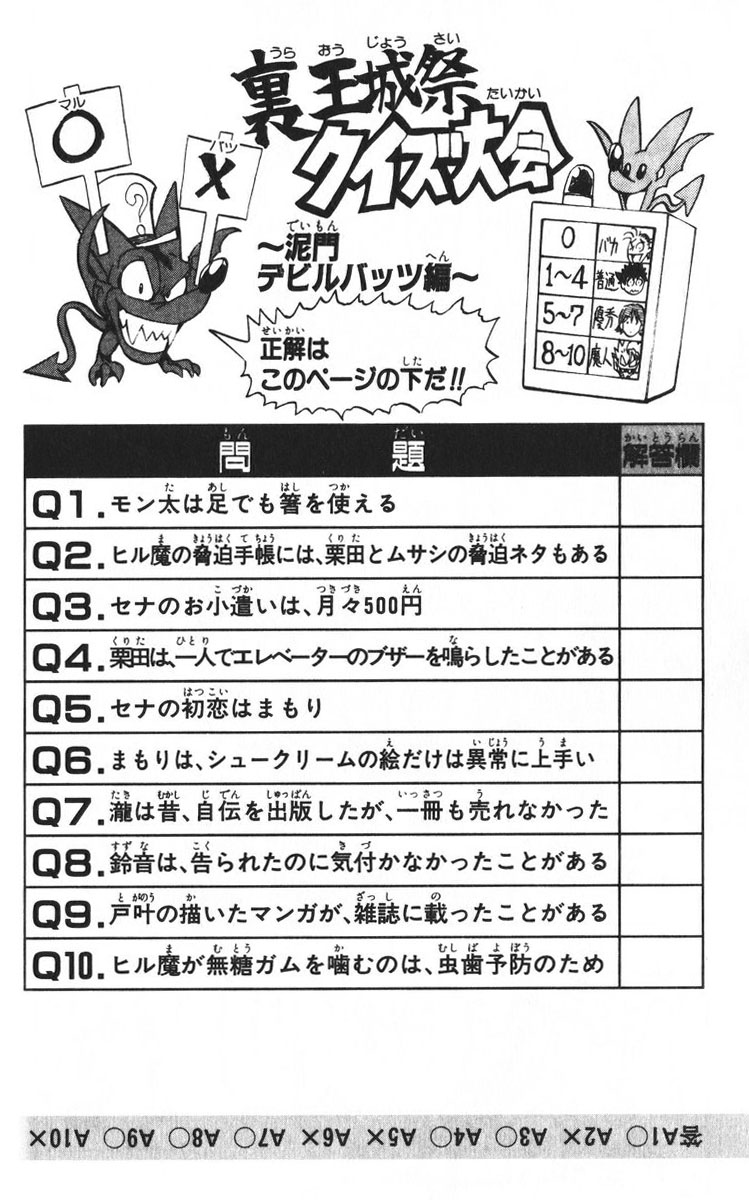 裏王城祭
クイズ大会
〜泥門
デビルバッツ編〜
マル
○
バツ
×
?
正解は
このページの下だ!!
0 バカ
1〜4 普通
5〜7 優秀
8〜10 魔人
問題 解答欄
Q1. モン太は足でも箸を使える
Q2. ヒル魔の脅迫手帳には、栗田とムサシの脅迫ネタもある
Q3. セナのお小遣いは、月々500円
Q4. 栗田は、一人でエレベーターのブザーを鳴らしたことがある
Q5. セナの初恋はまもり
Q6. まもりは、シュークリームの絵だけは異常に上手い
Q7. 瀧は昔、自伝を出版したが、一冊も売れなかった
Q8. 鈴音は、告られたのに気付かなかったことがある
Q9. 戸叶の描いたマンガが、雑誌に載ったことがある
Q10. ヒル魔が無糖ガムを噛むのは、虫歯予防のため
答A1○ A2× A3○ A4○ A5× A6× A7○ A8○ A9○ A10×